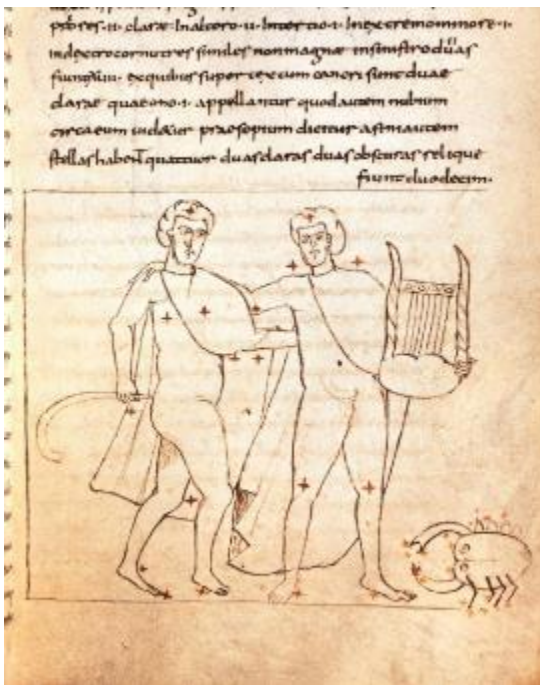 res · ii · clarae · In altero · ii · In tertio · i · In extremo minore · i ·
in dextro cornu tres similes non magnae in sinistro duas
ex quibus super testum cancri sunt duae
clarae quae ono · i · appellantur quod autem nubium
circa eum videtur praesepium dicitur asini autem
stellas habent quattuor duas claras duas obscuras relique
fiunt duodecim ·